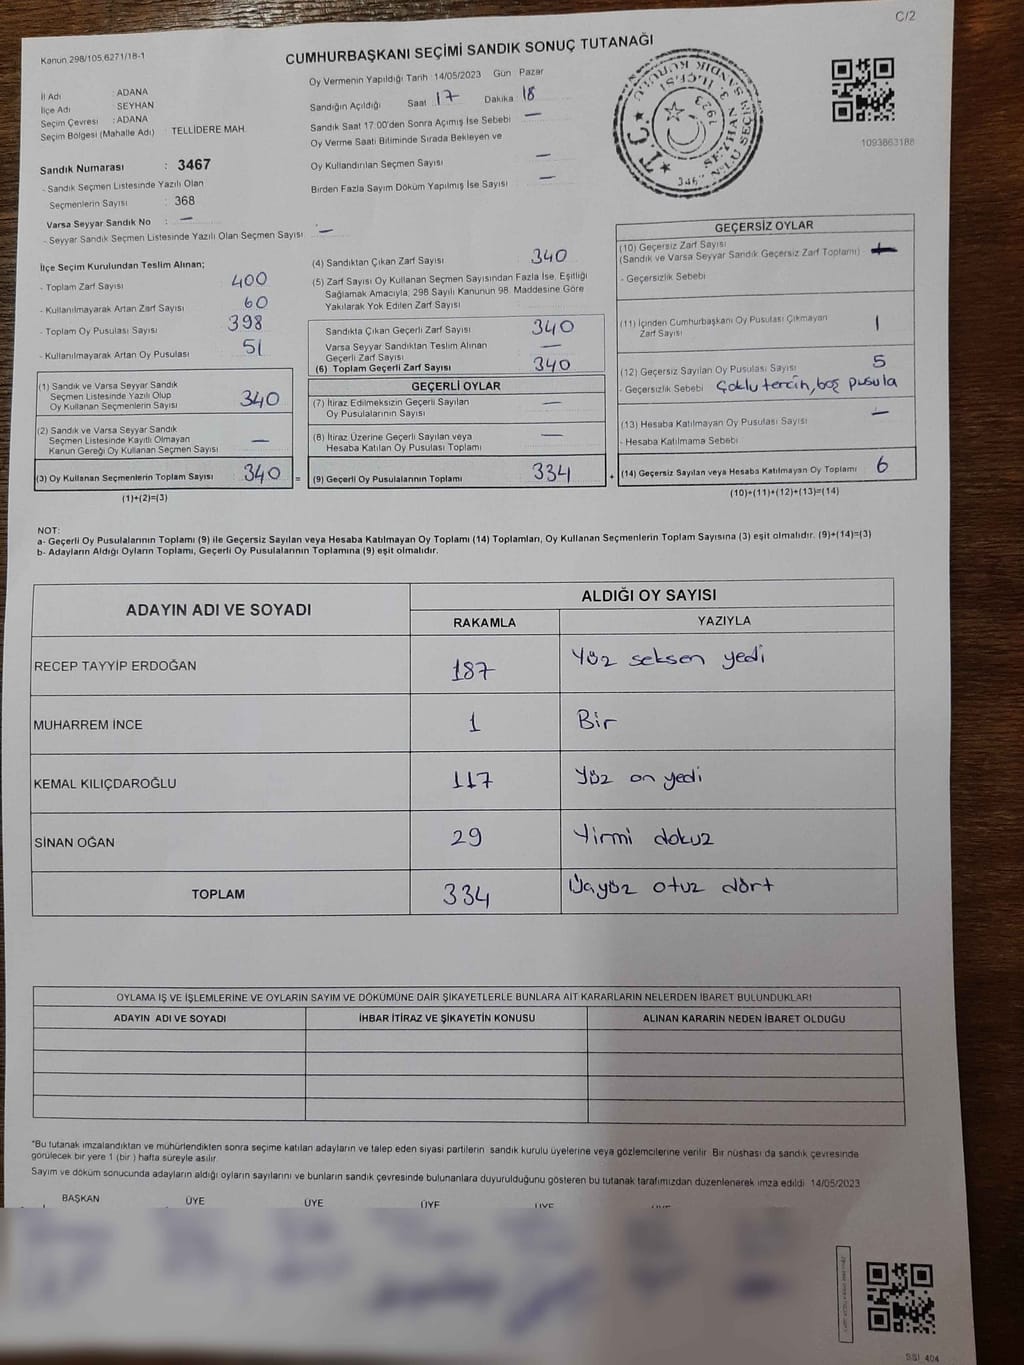 C/2
Kanun,298/105,6271/18-1
CUMHURBAŞKANI SEÇİMİ SANDIK SONUÇ TUTANAĞI
İl Adı : ADANA
İlçe Adı : SEYHAN
Seçim Çevresi : ADANA
Seçim Bölgesi (Mahalle Adı) : TELLİDERE MAH.
Sandık Numarası : 3467
- Sandık Seçmen Listesinde Yazılı Olan
Seçmenlerin Sayısı : 368
Varsa Seyyar Sandık No : —
- Seyyar Sandık Seçmen Listesinde Yazılı Olan Seçmen Sayısı : —
Oy Vermenin Yapıldığı Tarih 14/05/2023 Gün Pazar
Sandığın Açıldığı Saat 17 Dakika 18
Sandık Saat 17:00'den Sonra Açımış İse Sebebi —
Oy Verme Saati Bitiminde Sırada Bekleyen ve
Oy Kullandırılan Seçmen Sayısı —
Birden Fazla Sayım Döküm Yapılmış İse Sayısı —
T.C.
SEYHAN 3. İLÇESİ
1923
3467 NO'LU SEÇİM
SANDIK KURULU
1093863188
İlçe Seçim Kurulundan Teslim Alınan;
- Toplam Zarf Sayısı 400
- Kullanılmayarak Artan Zarf Sayısı 60
- Toplam Oy Pusulası Sayısı 398
- Kullanılmayarak Artan Oy Pusulası 51
(1) Sandık ve Varsa Seyyar Sandık
Seçmen Listesinde Yazılı Olup
Oy Kullanan Seçmenlerin Sayısı 340
(2) Sandık ve Varsa Seyyar Sandık
Seçmen Listesinde Kayıtlı Olmayan
Kanun Gereği Oy Kullanan Seçmen Sayısı —
(3) Oy Kullanan Seçmenlerin Toplam Sayısı 340 =
(1)+(2)=(3)
(4) Sandıktan Çıkan Zarf Sayısı 340
(5) Zarf Sayısı Oy Kullanan Seçmen Sayısından Fazla İse, Eşitliği
Sağlamak Amacıyla; 298 Sayılı Kanunun 98. Maddesine Göre
Yakılarak Yok Edilen Zarf Sayısı
Sandıkta Çıkan Geçerli Zarf Sayısı 340
Varsa Seyyar Sandıktan Teslim Alınan
Geçerli Zarf Sayısı —
(6) Toplam Geçerli Zarf Sayısı 340
GEÇERLİ OYLAR
(7) İtiraz Edilmeksizin Geçerli Sayılan
Oy Pusulalarının Sayısı —
(8) İtiraz Üzerine Geçerli Sayılan veya
Hesaba Katılan Oy Pusulası Toplamı —
(9) Geçerli Oy Pusulalarının Toplamı 334 +
GEÇERSİZ OYLAR
(10) Geçersiz Zarf Sayısı
(Sandık ve Varsa Seyyar Sandık Geçersiz Zarf Toplamı)
- Geçersizlik Sebebi
(11) İçinden Cumhurbaşkanı Oy Pusulası Çıkmayan
Zarf Sayısı 1
(12) Geçersiz Sayılan Oy Pusulası Sayısı 5
- Geçersizlik Sebebi Çoklu tercih, boş pusula
(13) Hesaba Katılmayan Oy Pusulası Sayısı —
- Hesaba Katılmama Sebebi
(14) Geçersiz Sayılan veya Hesaba Katılmayan Oy Toplamı 6
(10)+(11)+(12)+(13)=(14)
NOT:
a- Geçerli Oy Pusulalarının Toplamı (9) ile Geçersiz Sayılan veya Hesaba Katılmayan Oy Toplamı (14) Toplamları, Oy Kullanan Seçmenlerin Toplam Sayısına (3) eşit olmalıdır. (9)+(14)=(3)
b- Adayların Aldığı Oyların Toplamı, Geçerli Oy Pusulalarının Toplamına (9) eşit olmalıdır.
ADAYIN ADI VE SOYADI
ALDIĞI OY SAYISI
RAKAMLA YAZIYLA
RECEP TAYYİP ERDOĞAN 187 Yüz seksen yedi
MUHARREM İNCE 1 Bir
KEMAL KILIÇDAROĞLU 117 Yüz on yedi
SİNAN OĞAN 29 Yirmi dokuz
TOPLAM 334 Üçyüz otuz dört
OYLAMA İŞ VE İŞLEMLERİNE VE OYLARIN SAYIM VE DÖKÜMÜNE DAİR ŞİKAYETLERLE BUNLARA AİT KARARLARIN NELERDEN İBARET BULUNDUKLARI
ADAYIN ADI VE SOYADI İHBAR İTİRAZ VE ŞİKAYETİN KONUSU ALINAN KARARIN NEDEN İBARET OLDUĞU
"Bu tutanak imzalandıktan ve mühürlendikten sonra seçime katılan adayların ve talep eden siyasi partilerin sandık kurulu üyelerine veya gözlemcilerine verilir. Bir nüshası da sandık çevresinde
görülecek bir yere 1 (bir ) hafta süreyle asılır.
Sayım ve döküm sonucunda adayların aldığı oyların sayılarını ve bunların sandık çevresinde bulunanlara duyurulduğunu gösteren bu tutanak tarafımızdan düzenlenerek imza edildi 14/05/2023
BAŞKAN ÜYE ÜYE ÜYE ÜYE
SSI 404